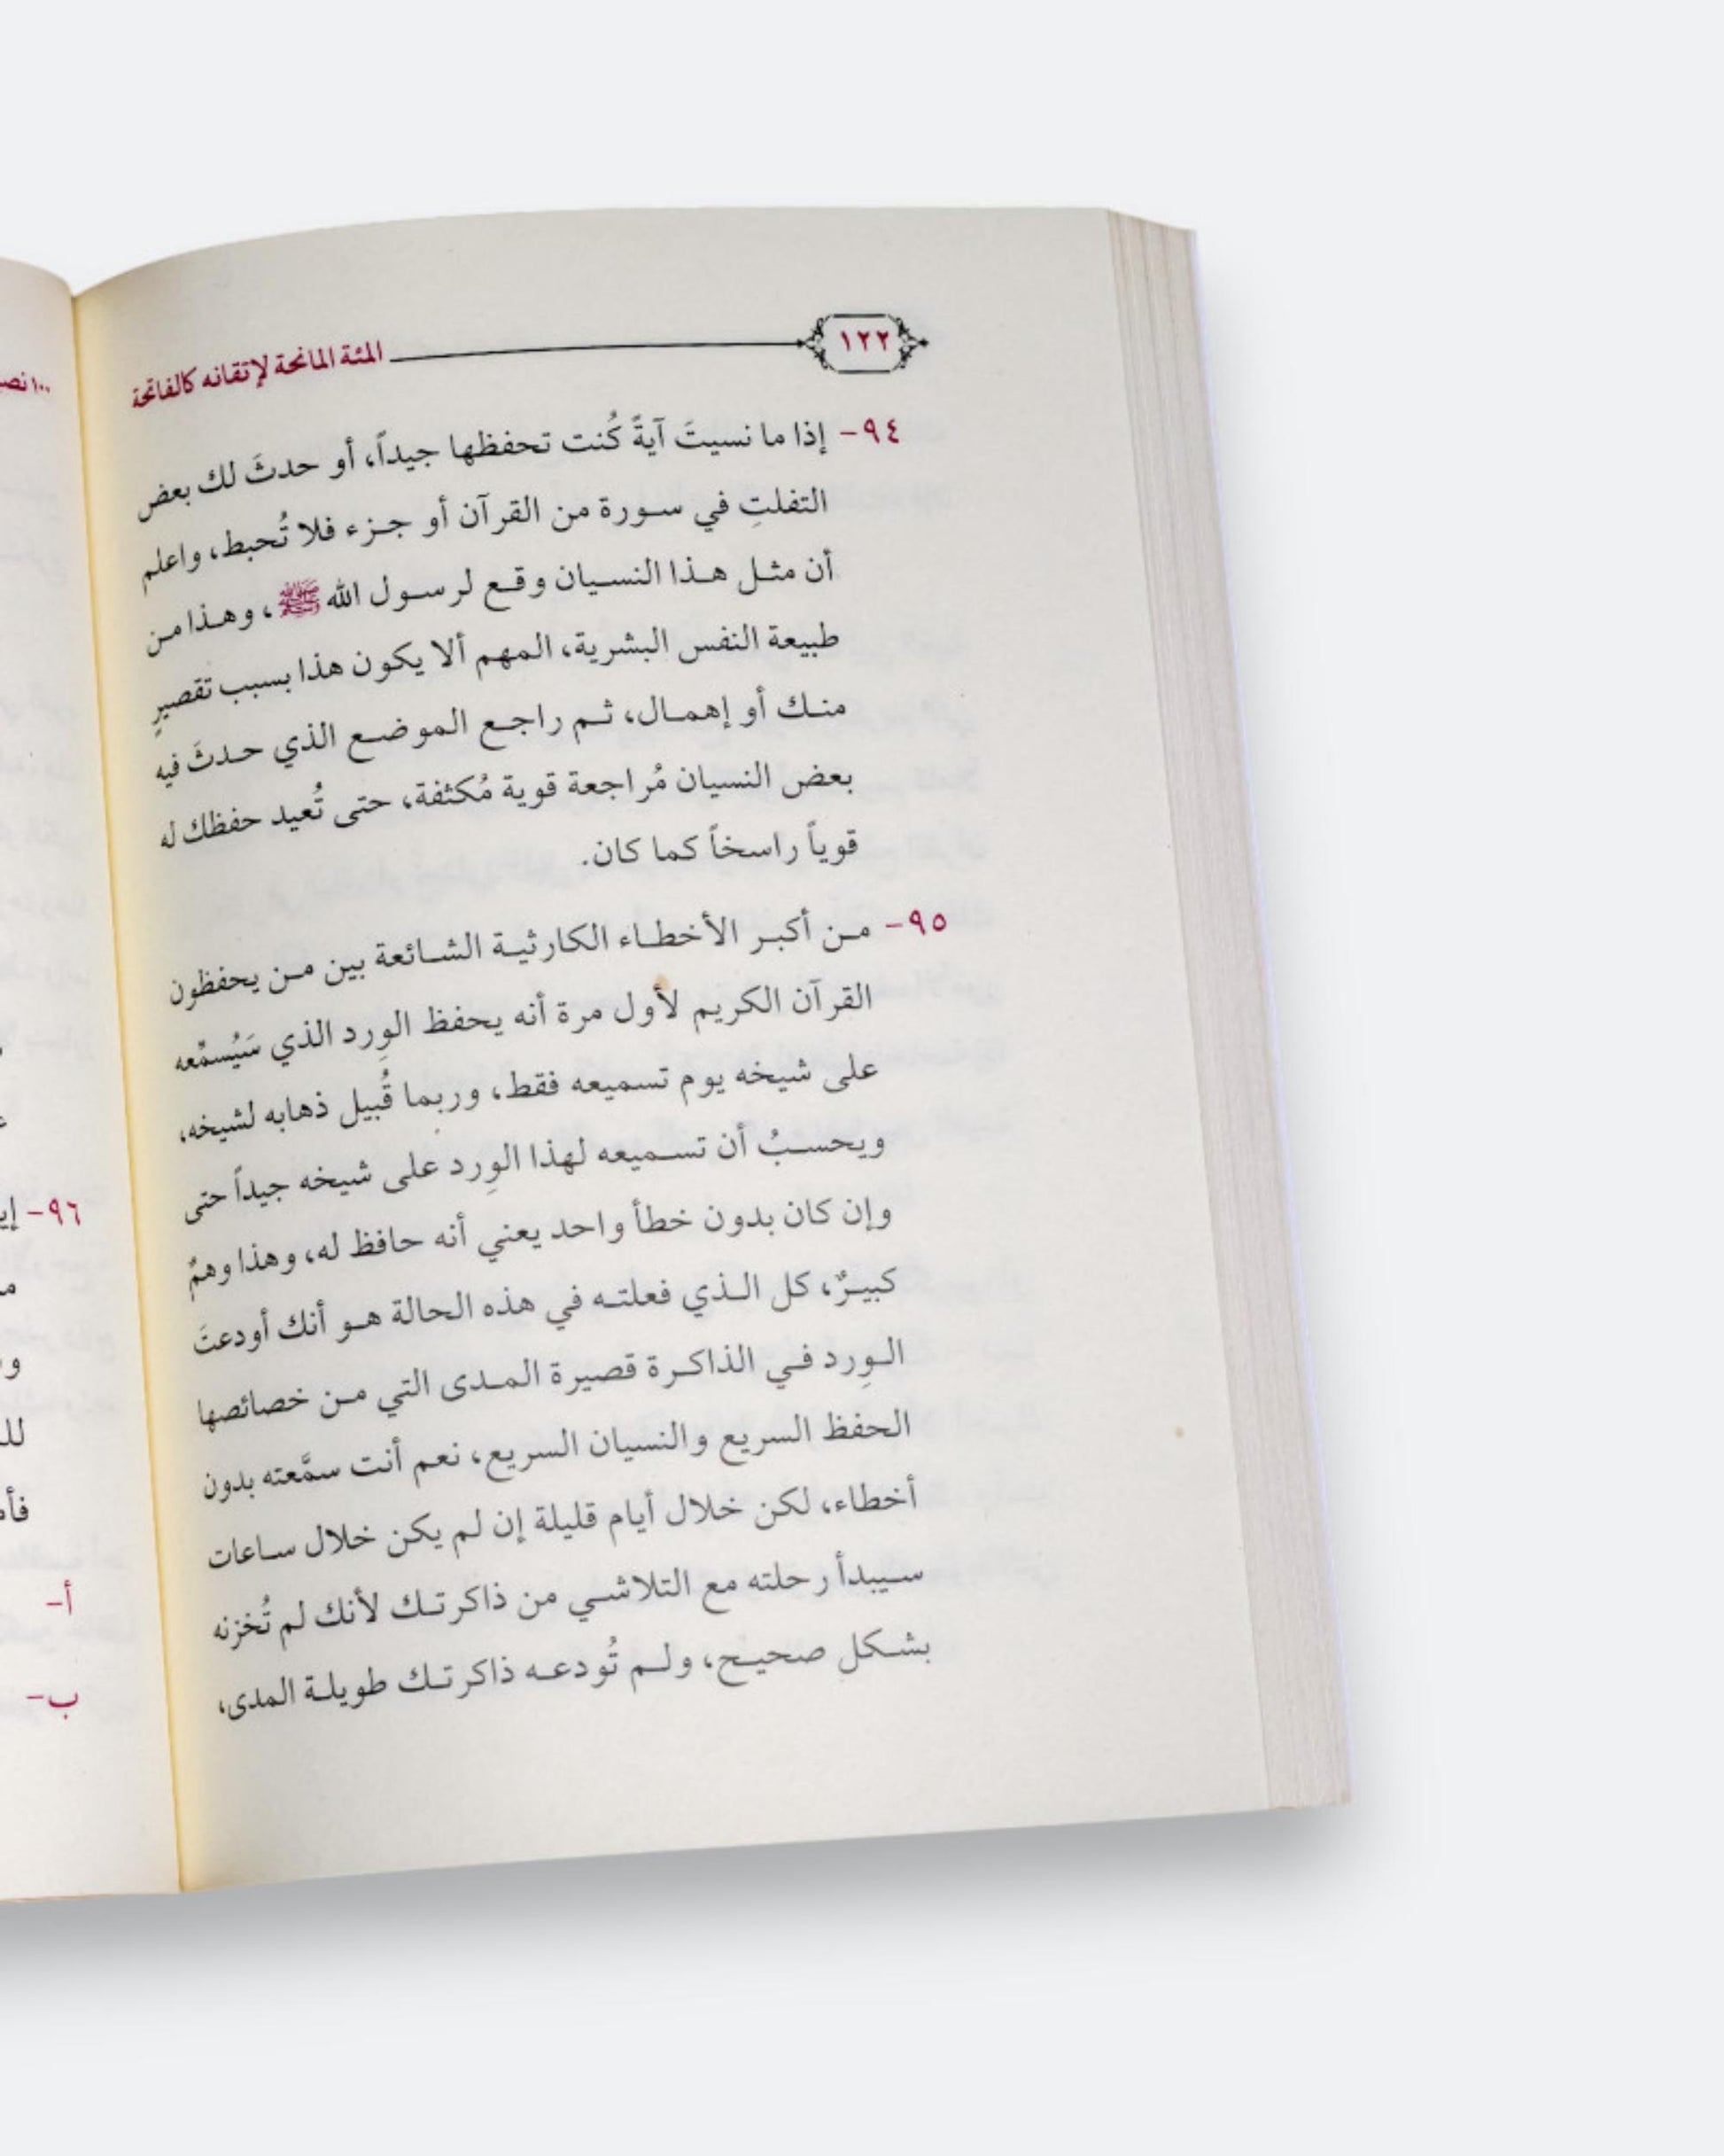 ١٢٢ المئة المانحة لإتقانه كالفاتحة
٩٤- إذا ما نسيتَ آيةً كُنت تحفظها جيداً، أو حدثَ لك بعض
التفلتِ في سورة من القرآن أو جزء فلا تُحبط، واعلم
أن مثل هذا النسيان وقع لرسول الله ﷺ، وهذا من
طبيعة النفس البشرية، المهم ألا يكون هذا بسبب تقصيرٍ
منك أو إهمال، ثم راجع الموضع الذي حدثَ فيه
بعض النسيان مُراجعة قوية مُكثفة، حتى تُعيد حفظك له
قوياً راسخاً كما كان.
٩٥- من أكبر الأخطاء الكارثية الشائعة بين من يحفظون
القرآن الكريم لأول مرة أنه يحفظ الوِرد الذي سَيُسمِّعه
على شيخه يوم تسميعه فقط، وربما قُبيل ذهابه لشيخه،
ويحسبُ أن تسميعه لهذا الوِرد على شيخه جيداً حتى
وإن كان بدون خطأ واحد يعني أنه حافظ له، وهذا وهمٌ
كبيرٌ، كل الذي فعلته في هذه الحالة هو أنك أودعتَ
الوِرد في الذاكرة قصيرة المدى التي من خصائصها
الحفظ السريع والنسيان السريع، نعم أنت سمَّعته بدون
أخطاء، لكن خلال أيام قليلة إن لم يكن خلال ساعات
سيبدأ رحلته مع التلاشي من ذاكرتك لأنك لم تُخزنه
بشكل صحيح، ولم تُودعه ذاكرتك طويلة المدى،
٩٦-
أ-
ب-